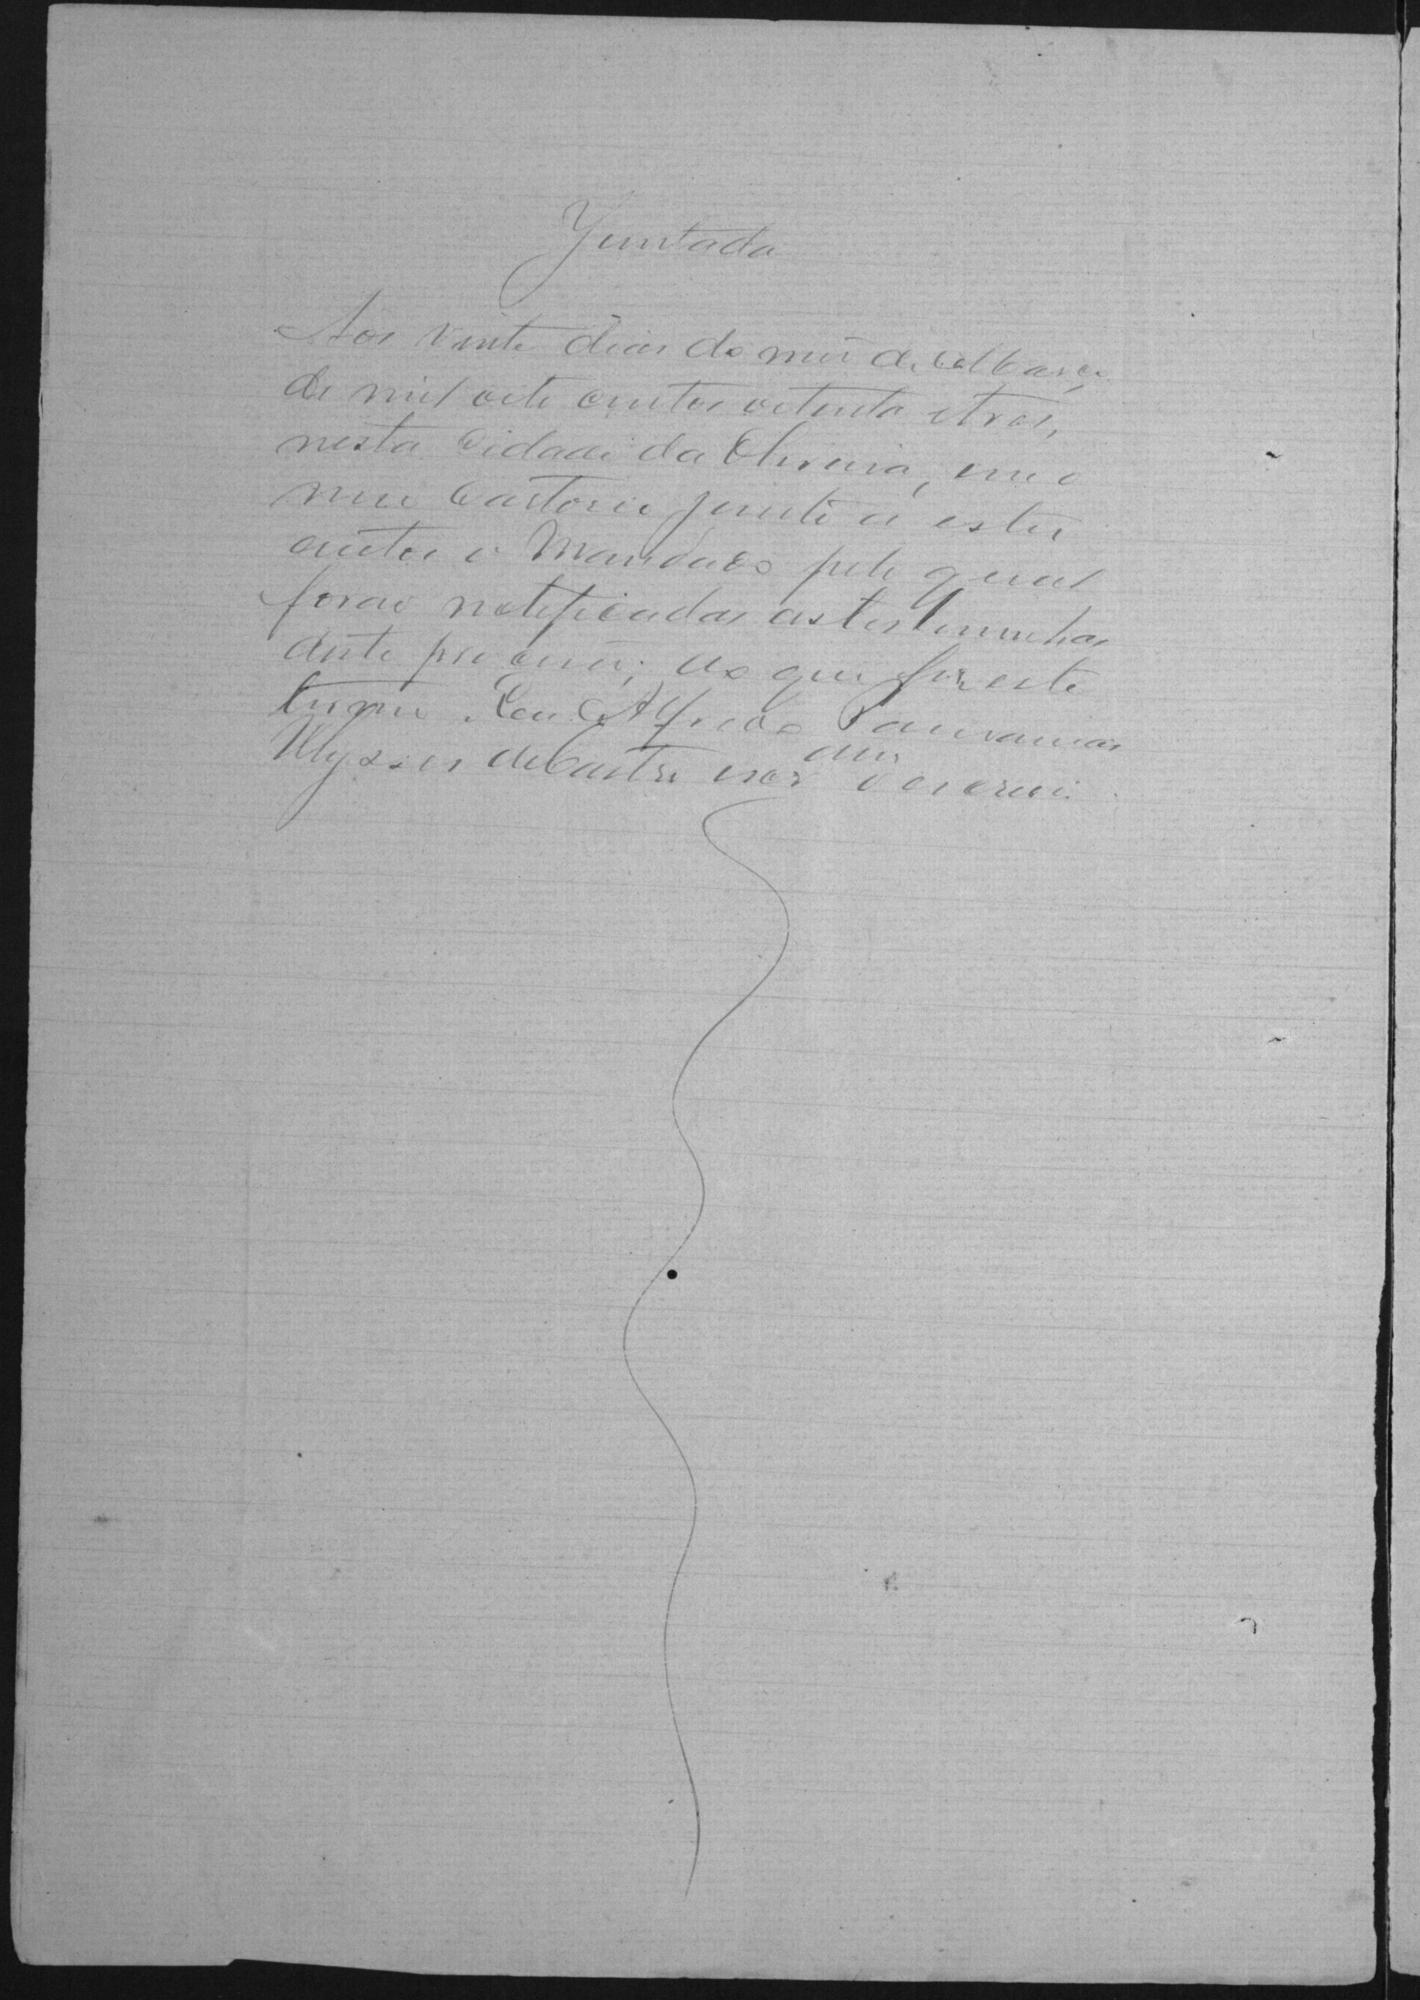 Juntada
Aos vinte dias do mes de Março
de mil oite centos oitenta e tres,
nesta Cidade da Oliveira, em o
meu Cartorio junto a estes
autos o Mandado pelo qual
forão notificadas as testemunhas
deste processo; do que fiz este
termo. Eu Alfredo Pausanias
Ulysses de Castro escr am o escrevi.